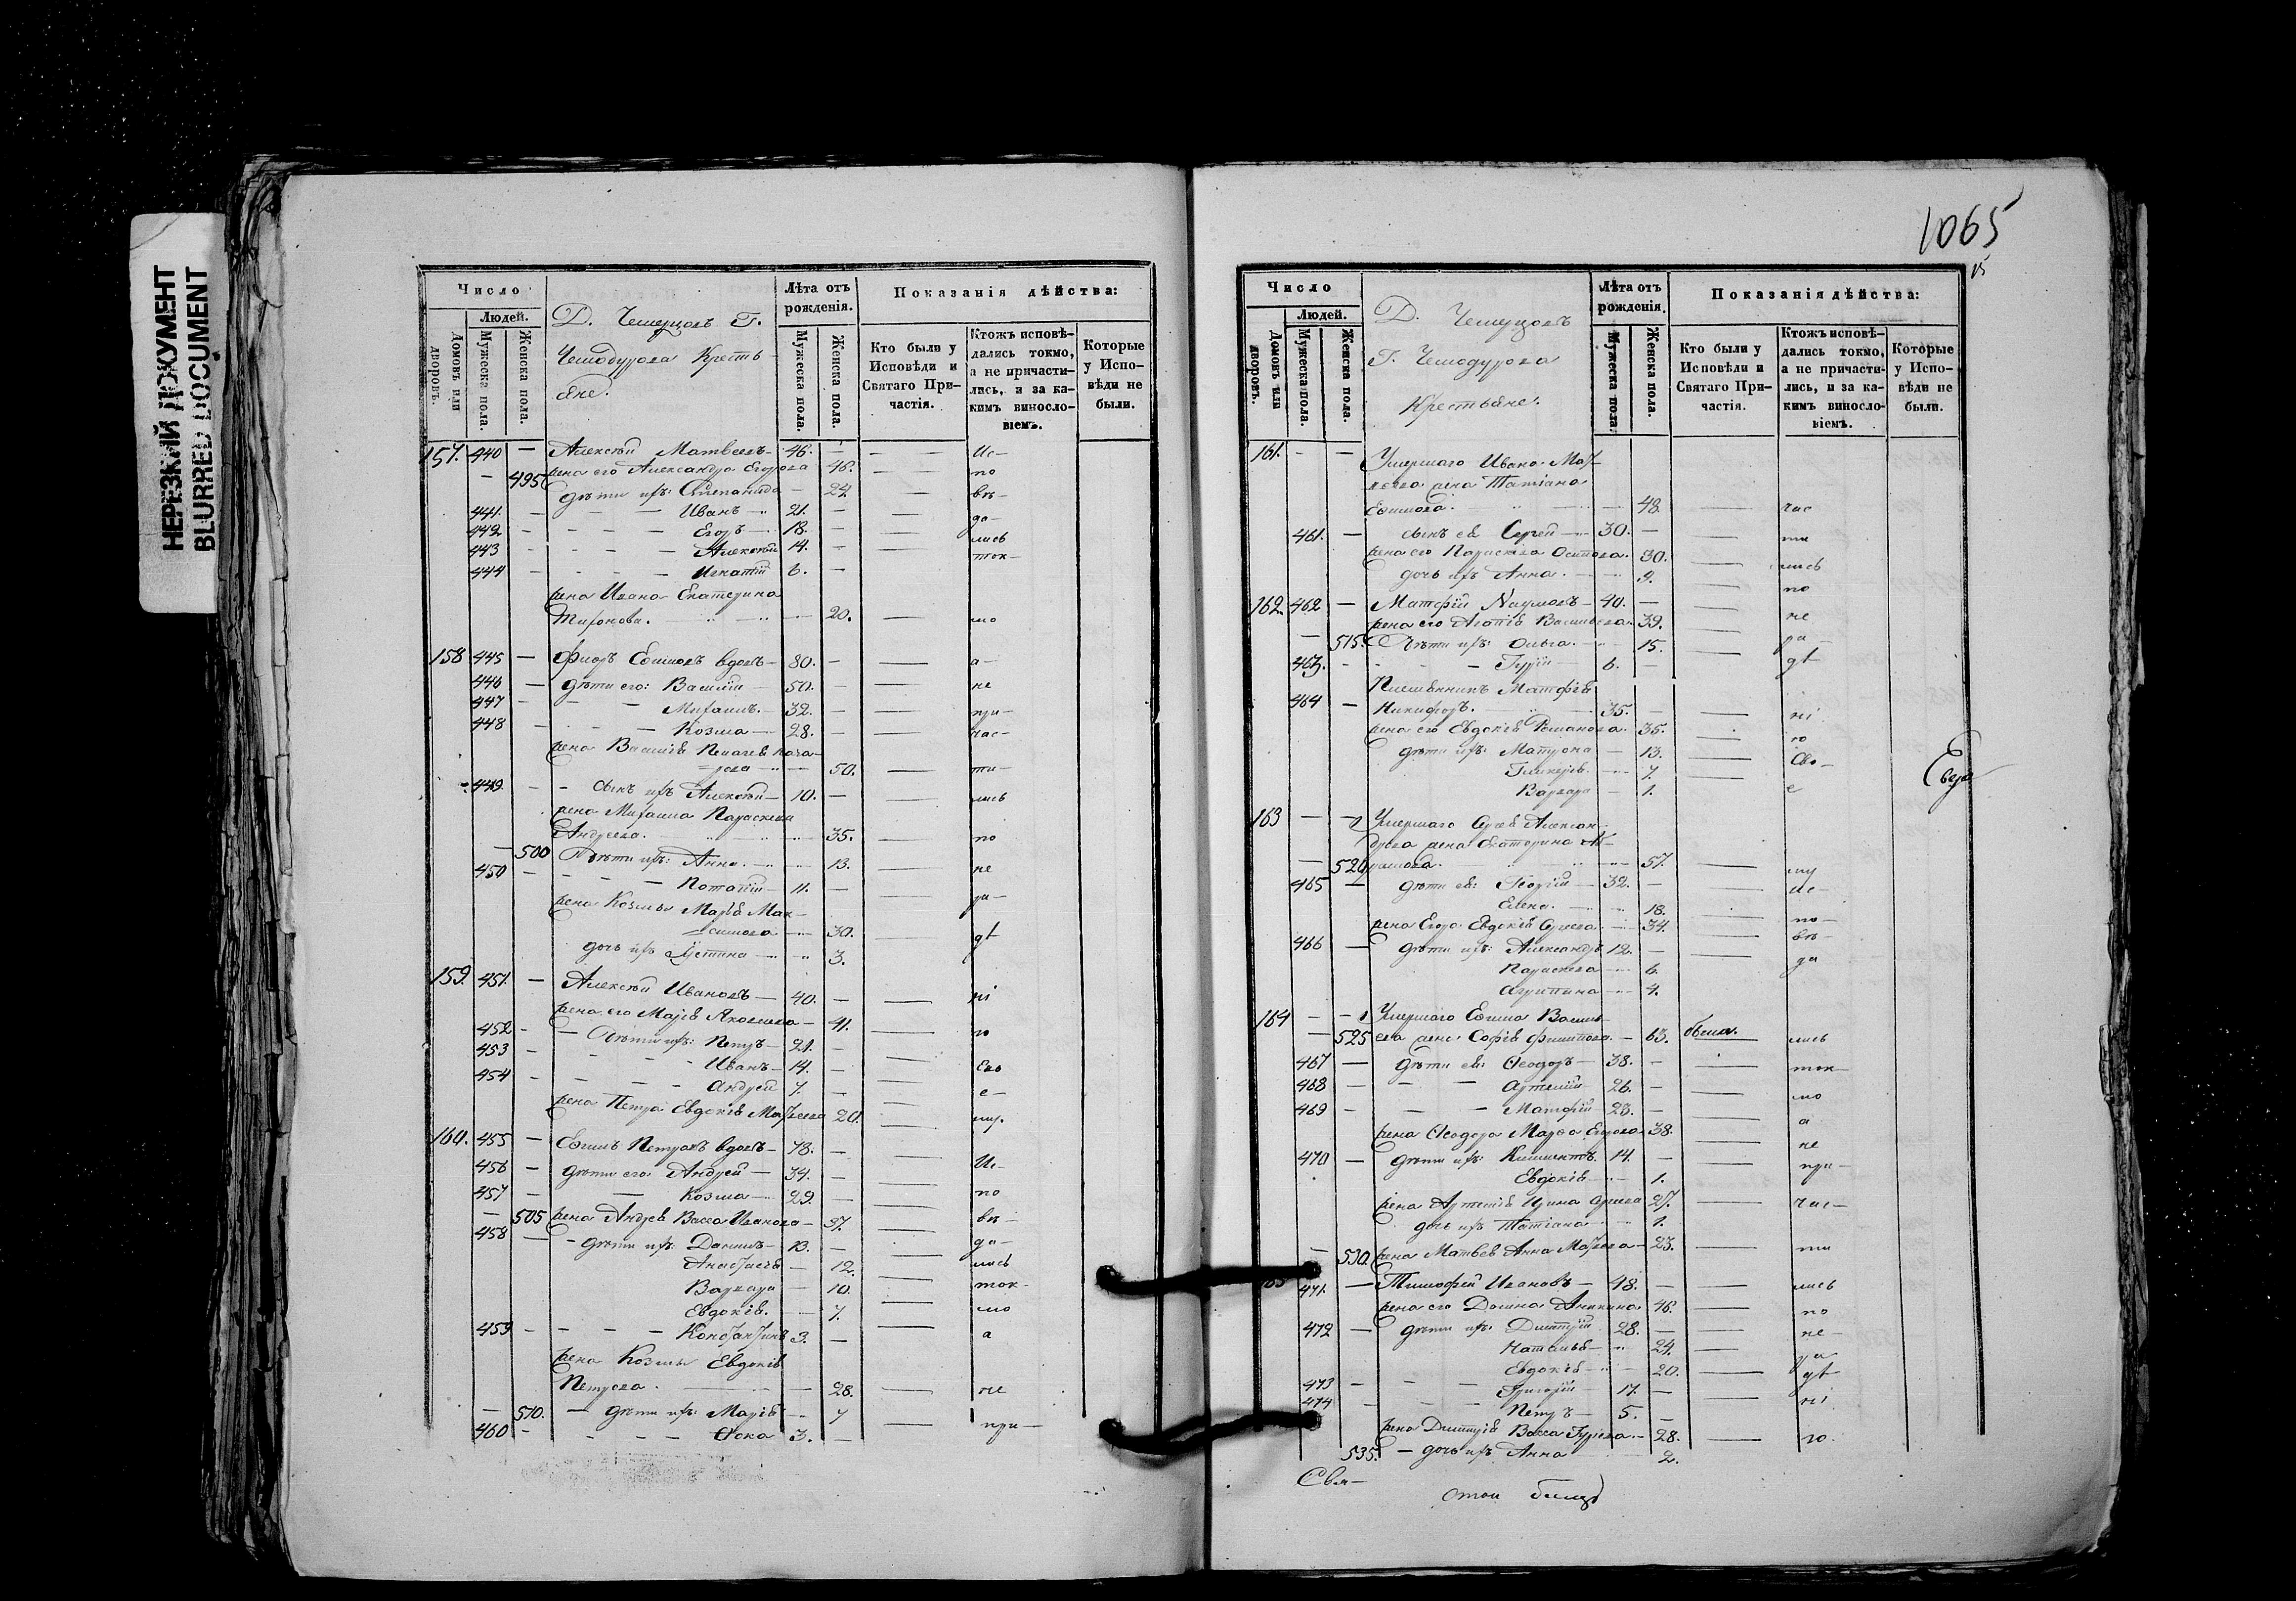 НЕРЕЗКИЙ ДОКУМЕНТ
BLURRED DOCUMENT
Число
Людей.
Домовъ или дворовъ.
Мужеска пола.
Женска пола.
Д. Чемерцовъ Г.
Чемодурова Кресть-
яне.
Лѣта отъ рожденія.
Мужеска пола.
Женска пола.
Показанія дѣйства:
Кто были у Исповѣди и Святаго Причастія.
Ктожъ исповѣдались токмо, а не причастились, и за какимъ винословіемъ.
Которые у Исповѣди не были.
157. 440 — Алексѣй Матвеевъ — 46. — Ис—
— 495 жена его Александра Егорова 46. по
дѣти ихъ: Степанида — 24. вѣ—
441. — Иванъ — 21. — да—
442 — Егоръ — 18. — лись
443 — Алексѣй 14. — ток—
444 — Игнатій 6. —
жена Ивана Екатерина
20. мо
158 445 — Ефимовъ вдовъ — 80. — а—
446 — дѣти его: Василій — 50. — не
447 — Михаилъ. — 32. — при—
448 — Козма — 28. — час—
жена Василія
50. ти—
449. — сынъ ихъ Алексѣй — 10. — лись
жена Михаила Параскева
Андреева. 35. по
— 500 Дѣти ихъ: Анна. 13. не
450 — Потапій — 11. — ра—
жена Козмы Марія Мак-
симова — 30. дѣ
дочь ихъ Устина — 3.
159. 451. — Алексѣй Ивановъ — 40. — ні
жена его Марія Яковлева — 41. ю
452 — Дѣти ихъ: Петръ — 21. —
453 — Иванъ — 14. — Сво
454 — Андрей 7. — е—
жена Петра Евдокія 20. му.
160. 455 — Ефимъ Петровъ вдовъ — 78. — Ис—
456 — дѣти его: Андрей — 34. —
457 — Козма — 29. — по
— 505 жена Андрея Васса Иванова — 37. вѣ—
458 — дѣти ихъ: Даниилъ — 13. — да—
Анастасія — 12. лись
Варвара — 10. ток—
Евдокія. — 7. мо
459 — Константинъ 3. — а
жена Козмы Евдокія
Петрова. 28. не
— 510. — дѣти ихъ: Марія 7 при—
460 — 3. —
1065
Число
Людей.
Домовъ или дворовъ.
Мужеска пола.
Женска пола.
Д. Чемерцовъ
Г. Чемодурова
Крестьяне.
Лѣта отъ рожденія.
Мужеска пола.
Женска пола.
Показанія дѣйства:
Кто были у Исповѣди и Святаго Причастія.
Ктожъ исповѣдались токмо, а не причастились, и за какимъ винословіемъ.
Которые у Исповѣди не были.
161. — — Умершаго Ивана Мат-
веева жена Татіана
Ефимова. 48. час
461. — сынъ ея Сергей — 30. — ти
жена его Параскева Осипова. 30. лись
дочь ихъ Анна. 9. по
162. 462 — Матфій Наумовъ — 40. — не
жена его Агапія Васильева. 39. ра
— 515. Дѣти ихъ: Ольга. 15. дѣ
463. — Гурій — 6. —
Племянникъ Матфія
464 — Никифоръ. 35. — ні
жена его Евдокія Романова. 35. ю
дѣти ихъ: Матрона — 13. Сво—
Гликерія. 7. е
Варвара — 1.
163 — — Умершаго Сергея Алексан-
дрова жена Екатерина
— 520 57. му
465 — дѣти ея: Георгій — 32. — Ис—
Елена. 18. по—
жена Егора Евдокія Сергеева. 34. вѣ—
466 — дѣти ихъ: Александръ 12. — да
Параскева — 6.
Агрипина — 4.
164 — — Умершаго Ефима Василь-
— 525 ева жена Софія Филиппова. — 63. была. лись
467 — дѣти ея: Ѳеодоръ — 38. — ток—
468 — Артемій — 26. — мо
469 — Матфій — 23. — а
жена Ѳеодора Марфа Егорова. 38. не
470 — дѣти ихъ: Климентъ. 14. — при—
Евдокія — 1.
жена Артемія Ирина 27. час—
дочь ихъ Татіана 1.
— 530 жена Матвея Анна 23. ти
165 471. — Тимофей Ивановъ — 48. — лись
жена его Домна Аникина 46. по
472 — дѣти ихъ: Димитрій 28. — не—
Наталья 24. ра
Евдокія 20. дѣ
473 — Григорій — 17. —
474 — Петръ — 5. — ні
жена Димитрія Васса Гурьева. — 28. ю.
535. — дочь ихъ Анна 2.
Свя—